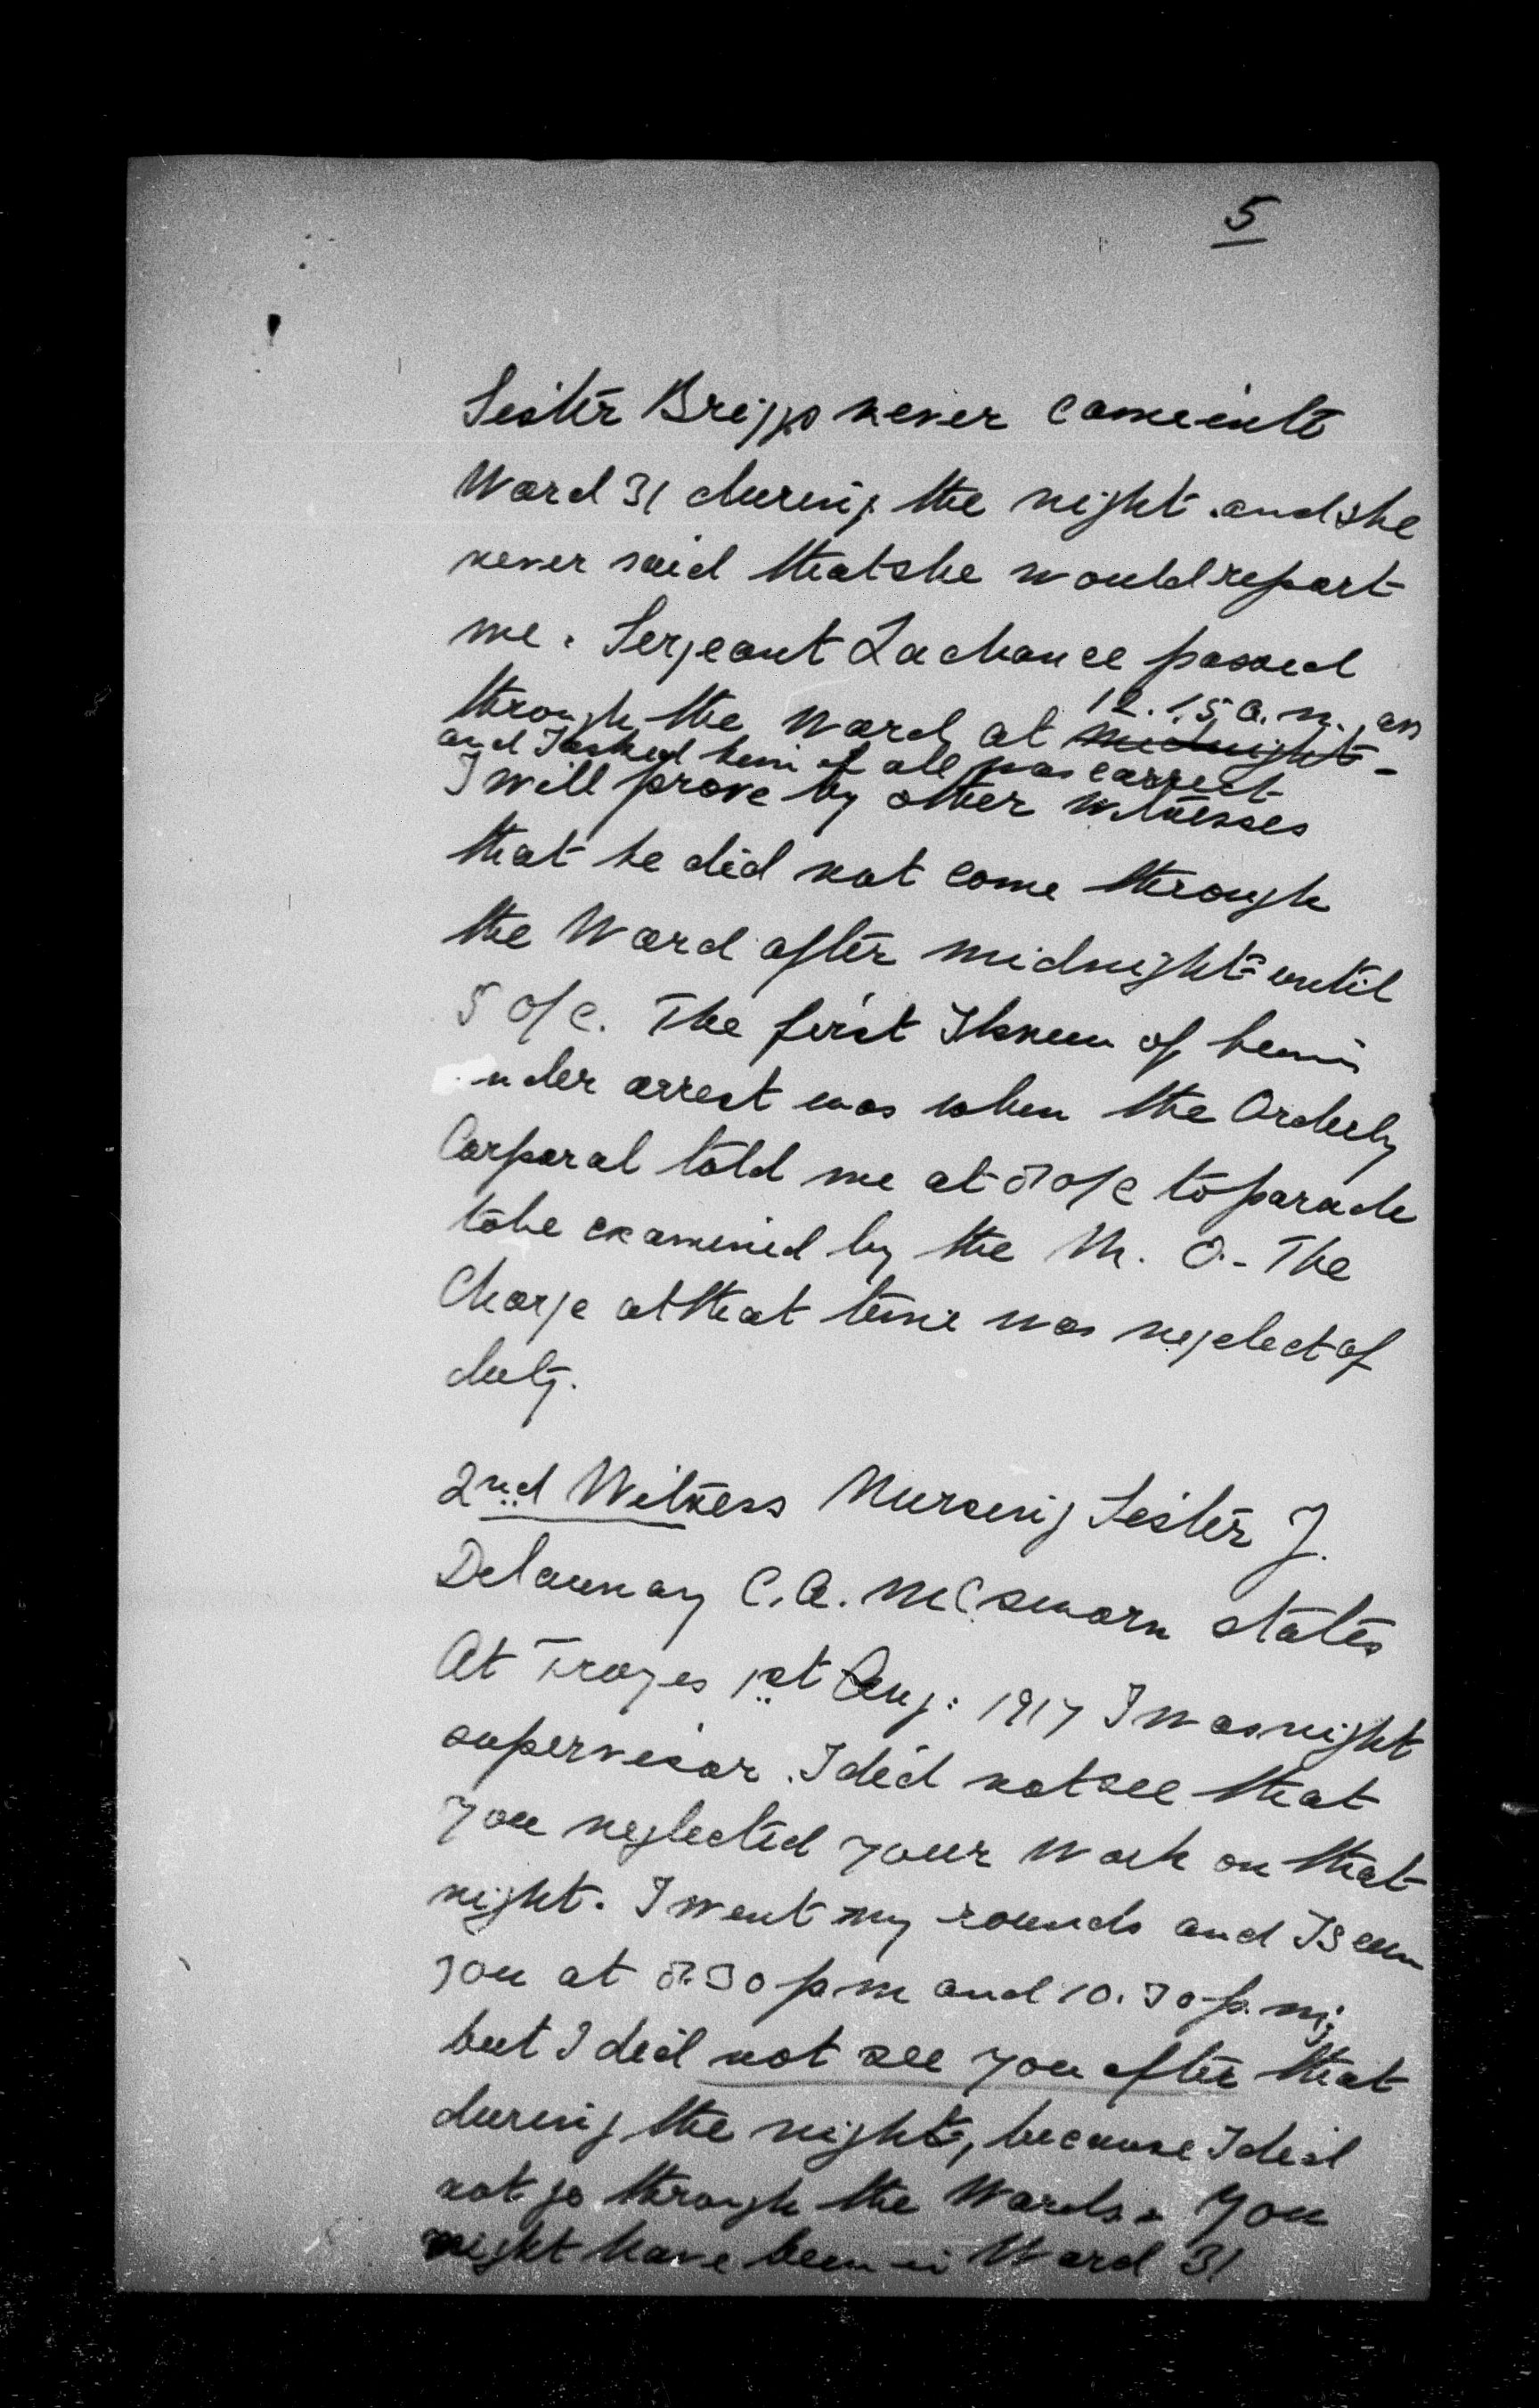 5
Sister Briggs never came into
Ward 31 during the night. and she
never said that she would report
me. Sergeant Lachance passed
through the Ward at 12.15 a.m. midnight -
and I asked him if all was correct
I will prove by other witnesses
that he did not come through
the Ward after midnight until
5 o/c. The first I knew of being
under arrest was when the Orderly
Corporal told me at 8 o/c to parade
to be examined by the M. O. - The
Charge at that time was neglect of
duty.
2nd Witness Nursing Sister J.
Delaunay C.A. M.C sworn states
At Troyes 1st Aug: 1917 I was night
supervisor. I did not see that
you neglected your work on that
night. I went my rounds and I seen
you at 8.30 pm and 10.30 p.m;
but I did not see you after that
during the night, because I did
not go through the Wards. You
might have been in Ward 31